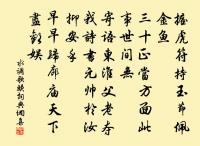 握虎符持玉節佩
金魚
三十正當方面此
事世間無
寄語東淮父老奪
我詩書元帥於汝
抑安乎
早早歸廊廟天下
盡歡娛
水調歌頭